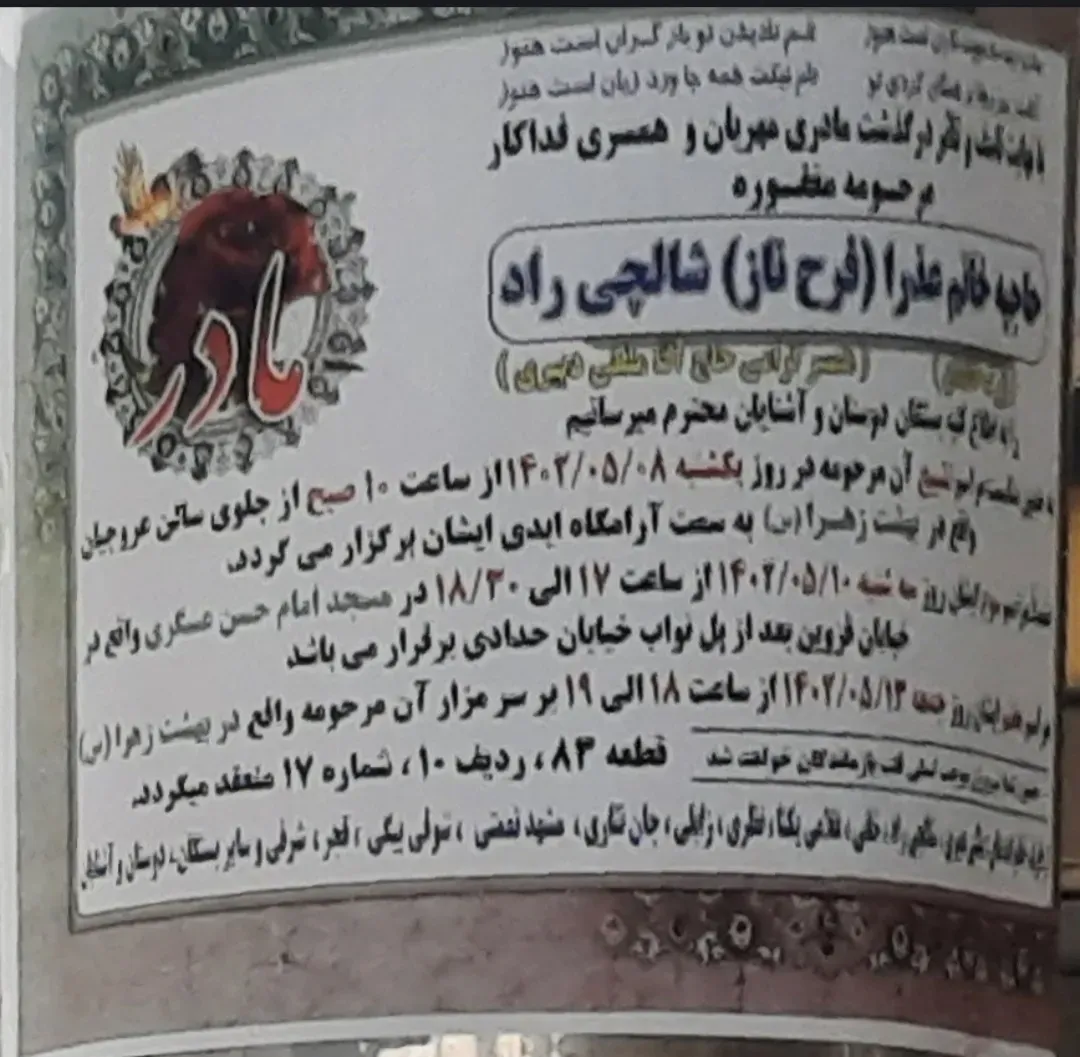 غم ندیدن تو بار گران است هنوز
نام نیکت همه جا ورد زبان است هنوز
با نهایت تأسف و تأثر درگذشت مادری مهربان و همسری فداکار
مرحومه مغفوره
حاجیه خانم عذرا (فرح ناز) شالچی راد
(همسر گرامی حاج آقا دبیری)
را به اطلاع کلیه بستگان دوستان و آشنایان محترم میرسانیم
مراسم تشییع آن مرحومه در روز یکشنبه ۱۴۰۲/۰۵/۰۸ از ساعت ۱۰ صبح از جلوی سالن عروجیان
واقع در بهشت زهرا (س) به سمت آرامگاه ابدی ایشان برگزار می گردد.
روز سه شنبه ۱۴۰۲/۰۵/۱۰ از ساعت ۱۷ الی ۱۸/۳۰ در مسجد امام حسن عسگری واقع در
خیابان قزوین بعد از پل نواب خیابان حدادی برقرار می باشد
روز جمعه ۱۴۰۲/۰۵/۱۳ از ساعت ۱۸ الی ۱۹ بر سر مزار آن مرحومه واقع در بهشت زهرا (س)
قطعه ۸۳، ردیف ۱۰، شماره ۱۷ منعقد میگردد.
موجب تسلی قلب بازماندگان خواهد شد
نظری، جان نثاری، مشهد نعمتی، تولی بیگی، شرفی و سایر بستگان، دوستان و آشنایان
مادر